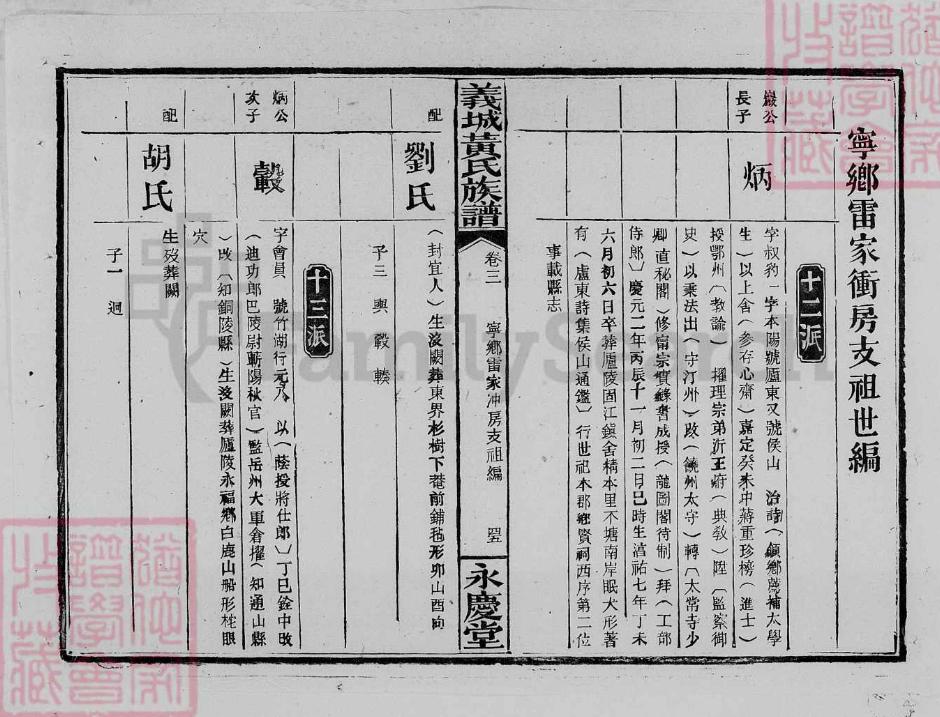 寧鄉雷家衝房支祖世編
十二派
巖公
長子
炳
字叔豹一字本陽號廬東又號侯山 治詩（領鄉薦補太學
生）以上舍（參存心齋）嘉定癸未中蔣重珍榜（進士）
授鄂州（教諭）擢理宗弟沂王府（典敎）陞（監察御
史）以乘法出（守汀州）改（饒州太守）轉（太常寺少
卿直秘閣）修甯宗實錄書成授（龍圖閣待制）拜（工部
侍郎）慶元二年丙辰十一月初二日巳時生淳祐七年丁未
六月初六日卒葬廬陵固江鎭舍精本里不塘南岸眠犬形著
有（盧東詩集侯山通鑑）行世祀本郡鄕賢祠西序第二位
事載縣志
義城黃氏族譜
卷三
寧鄉雷家冲房支祖編
永慶堂
配
劉氏
（封宜人）生歿闕葬東界杉樹下菴前鋪毡形卯山酉向
子三 輿 轂 輳
十三派
炳公
次子
轂
字會員 號竹湖行元八 以（蔭授將仕郎）丁巳銓中改
（迪功郎巴陵尉蘄陽秋官）監岳州大軍倉擢（知通山縣
）改（知銅陵縣）生歿闕葬廬陵永福鄉白鹿山船形桅眼
穴
配
胡氏
生歿葬闕
子一 迥
FamilySearch